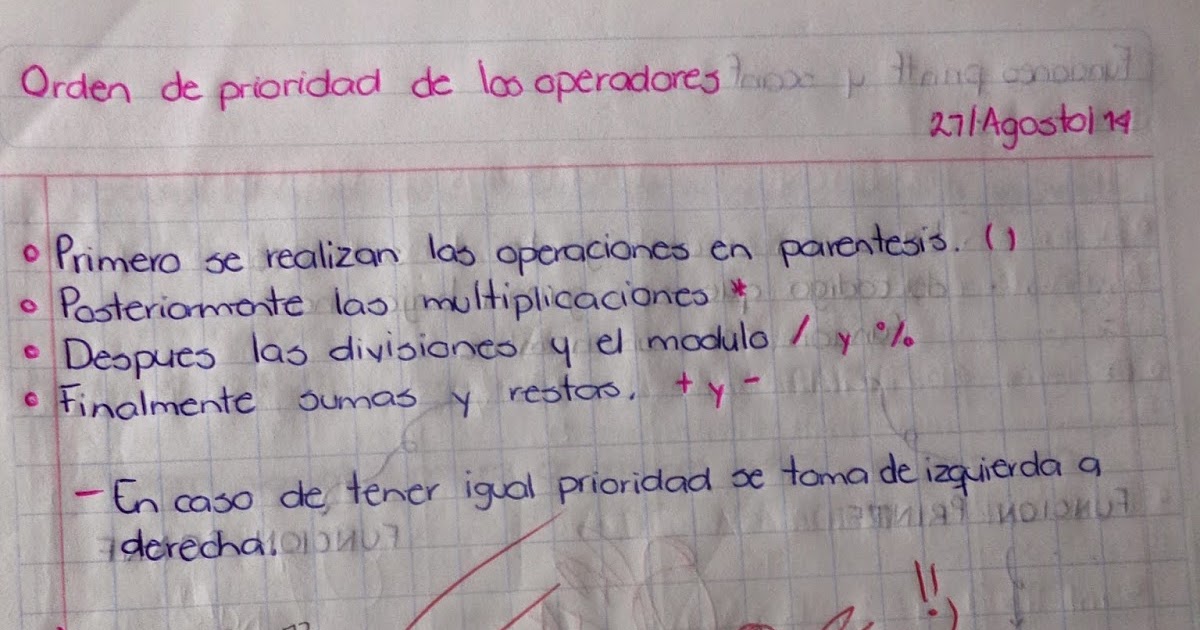 Orden de prioridad de los operadores
27/Agosto/14
Primero se realizan las operaciones en parentesis. ()
Posteriormente las multiplicaciones *
Despues las divisiones y el modulo / y %
Finalmente sumas y restas. + y -
- En caso de tener igual prioridad se toma de izquierda a
derecha.
!!